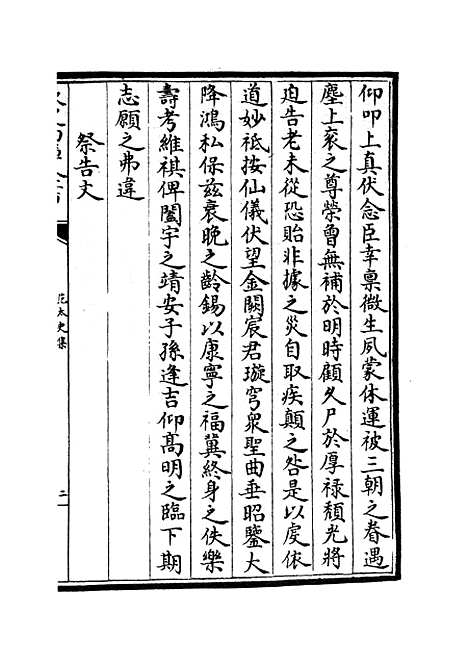 仰叩上真伏念臣幸禀微生夙蒙休運被三朝之眷遇
塵上衮之尊榮曾無補於明時顧久尸於厚禄頽光將
迫告老未從恐貽非據之災自取疾顛之咎是以䖍依
道妙祗按仙儀伏望金闕宸君璇穹衆聖曲垂昭鑒大
降鴻私保兹衰晚之齡錫以康寧之福冀終身之佚樂
壽考維祺俾闔宇之靖安子孫逢吉仰髙明之臨下期
志願之弗違
祭告文
范太史集